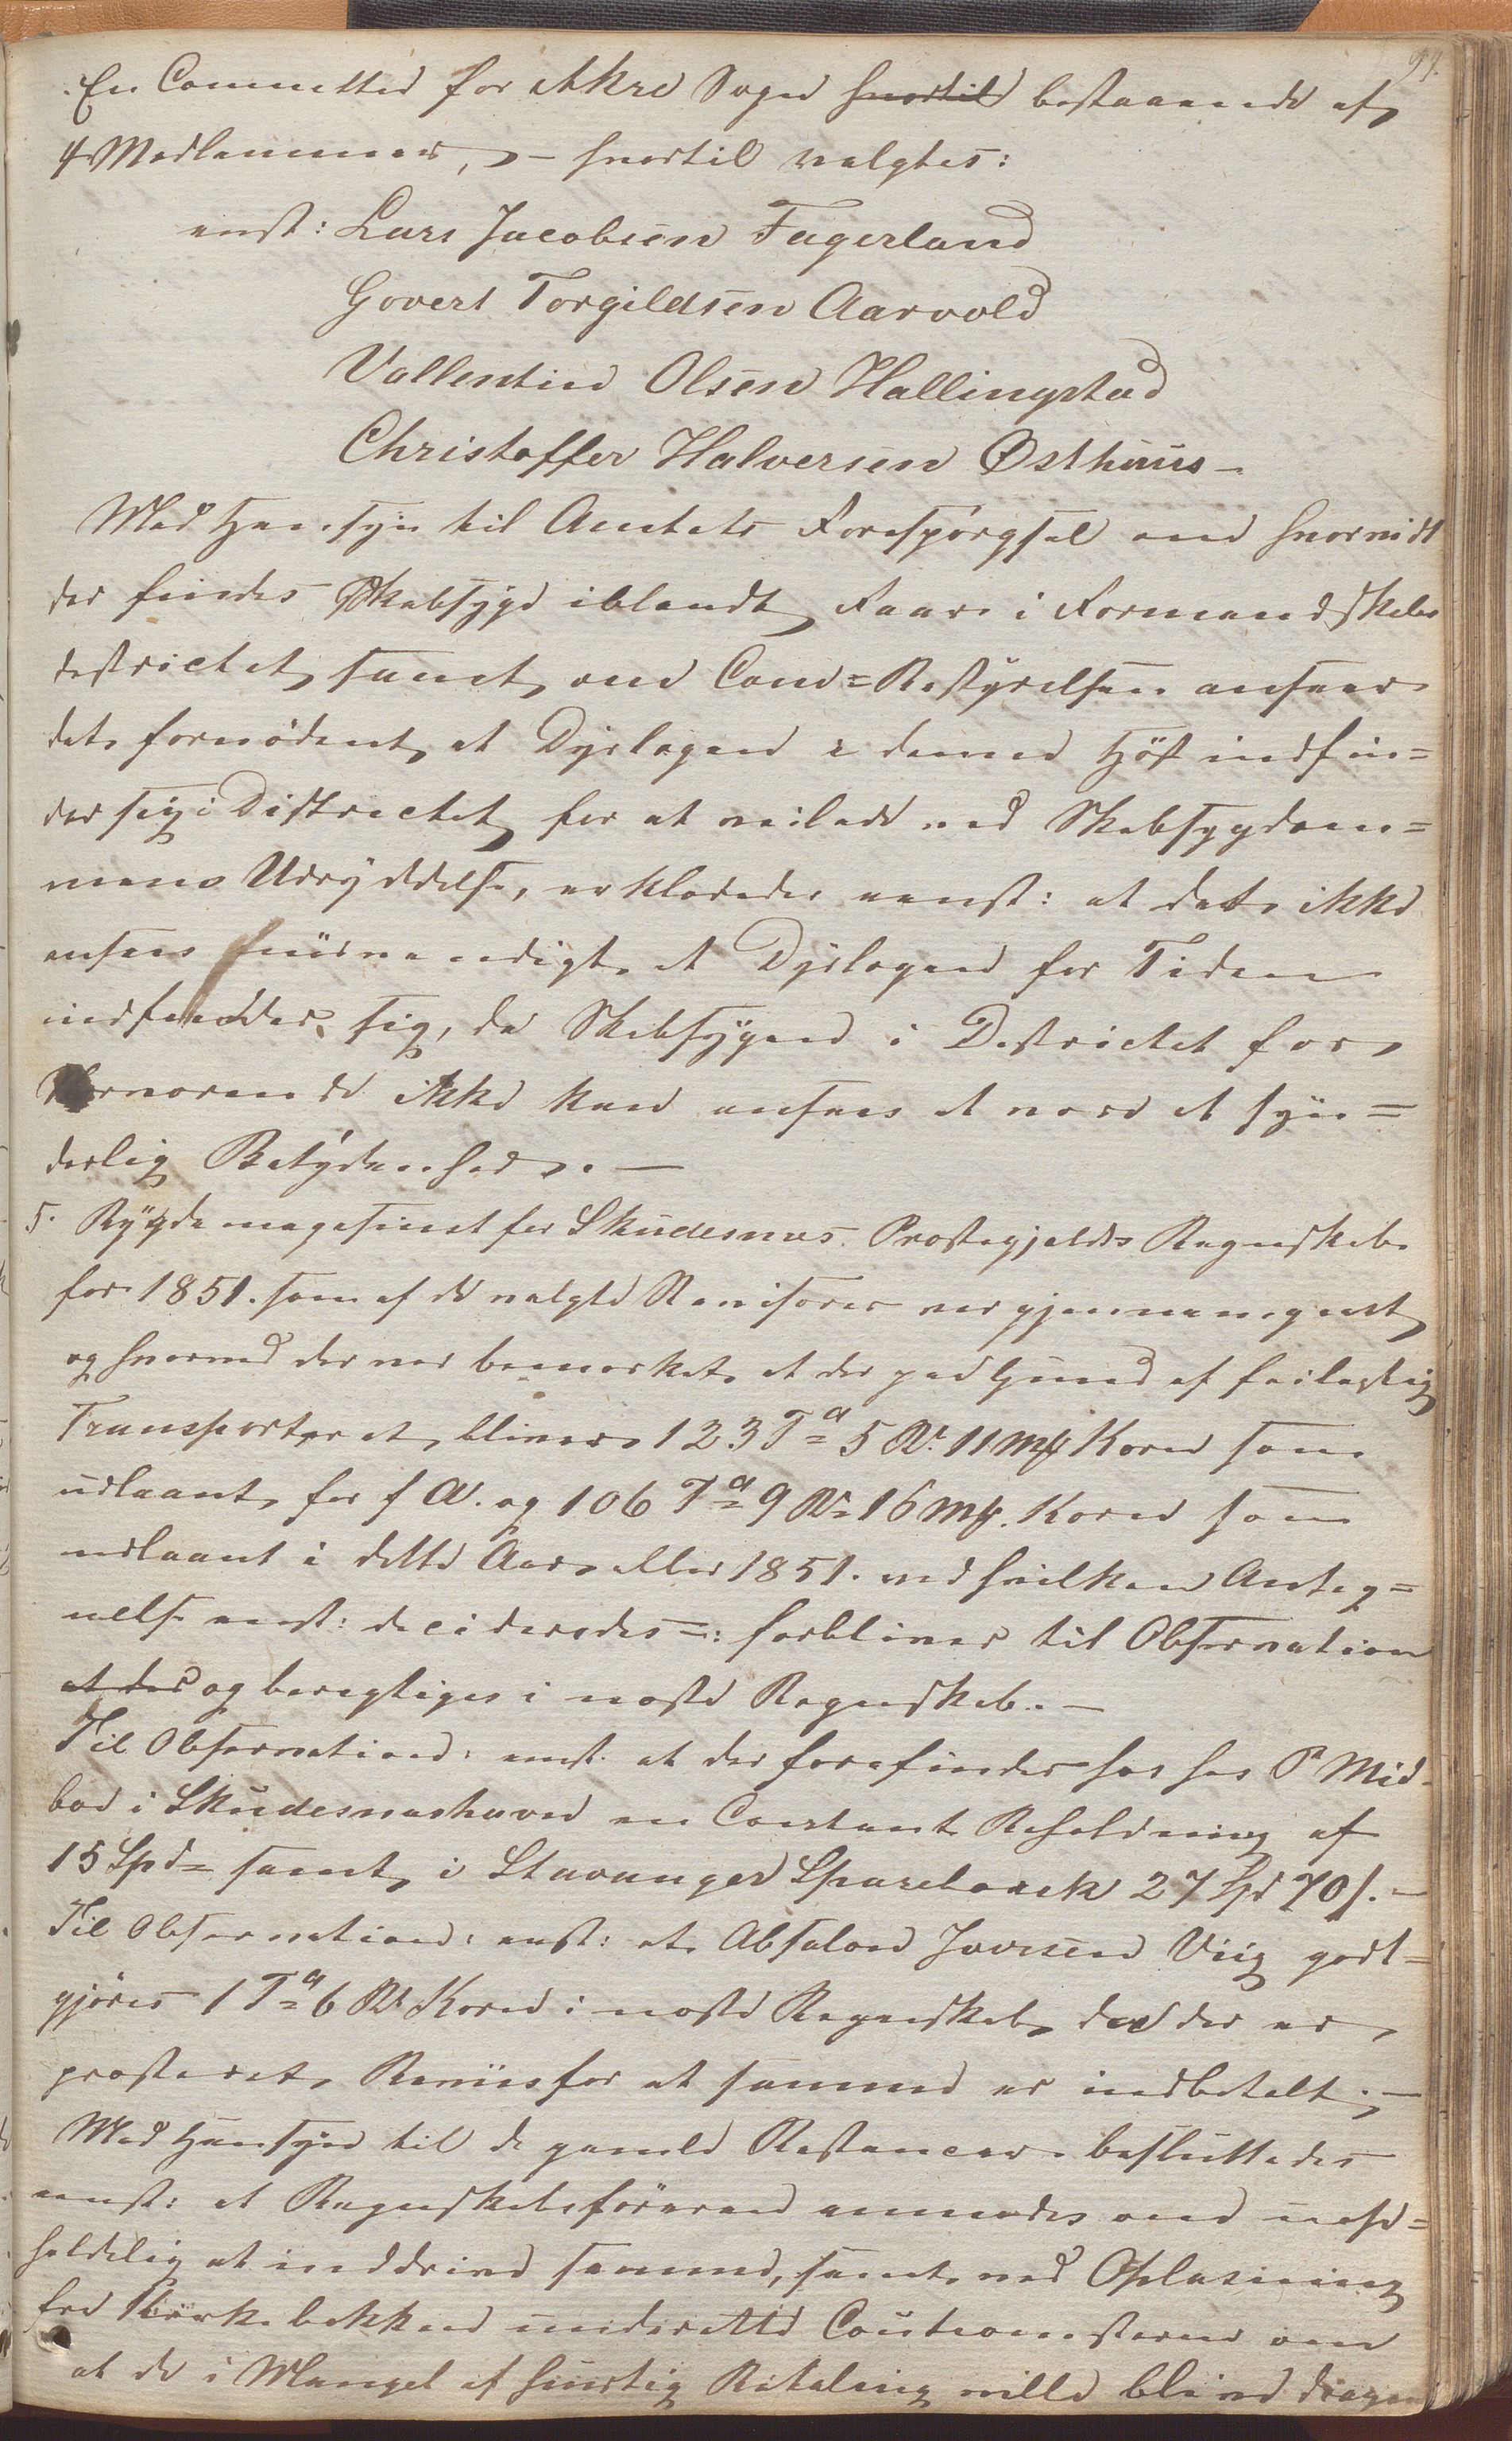 97.
En Committee for Akre Sogn hvortil bestaaende af
4 Medlemmer, – hvortil valgtes:
enst: Lars Jacobsen Fagerland
Govert Torgildsen Aarvold
Vallentin Olsen Hallingstad
Christoffer Halversen Østhuus –
Med Hensyn til Amtets Forespörgsel om hvorvidt
der findes Skabsyge iblandt Faar i Formandskabs
destrictet, samt, om Com=Bestyrelsen anseer
det fornödent, at Dyrlægen i denne Höst indfin=
der sig i Districtet, for at veilede ved Skabsygdom=
mens Udryddelse, erklæredes eenst: at det ikke
ansees nödvendigt, at Dyrlægen for Tiden
indfinder sig, da Skabsygen i Destrictet for,
nærværende ikke kan ansees at være et syn=
derlig Betydenhed. –
5. Bygdemagasinet for Skudesnæs Præstegjelds Regnskab
for 1851. som af de valgte Revisorer var gjennemgaaet,
og hvorved der var bemærket, at der paa Grund af feilagtig
Transporteret, bliver 123 Tdr 5 Skr 11 Mk Korn som
udlaant, for f A. og 106 Tdr 9 Skr 16 Mk. Korn som
udlaant i dette Aar, eller 1851. ved hvilken Anteg=
nelse eenst: decideredes =: forbliver til Observation
at der og berigtiges i næste Regnskab. –
Til Observation: eenst. at der forefindes hos Hr P Mid-
bøe i Skudesnæshavn en Contant Beholdning af
15 Spd= samt, i Stavanger Sparebank 27 Spd 70 s. –
Til Observation: enst: at Absalon Iversen Viig godt=
gjöres 1 Td 6 Skr Korn i næste Regnskab, da der er,
præsteret, Beviis for at samme er indbetalt. –
Med Hensyn til de gamle Restancer besluttedes
eenst: at Regnskabsföreren anmodes om ueop=
holdelig at inddrive samme, samt ved Oplæsning
fra Kirkebakken underrette Cautionisterne om
at de i Mangel af hurtig Betaling ville blive dragen